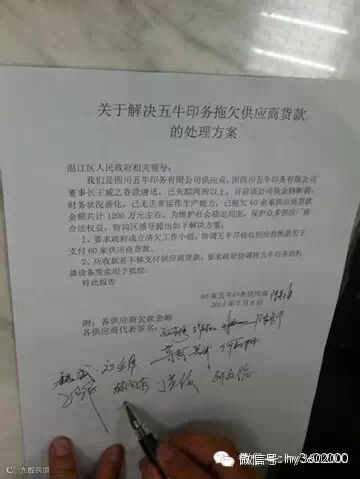 关于解决五牛印务拖欠供应商货款
的处理方案
温江区人民政府相关领导:
我们是四川五牛印务有限公司供应商,因四川五牛印务有限公司
董事长王威之卷款潜逃,已失踪两周以上,目前该公司资金链断裂,
财务状况恶化,已无正常运作生产能力,已拖欠 60 余家供应商货款
金额共计 1200 万元左右,为维护社会稳定局面,保护众多供应厂商
合法权益,特向区领导提出如下解决方案:
1、要求政府成立清欠工作小组,协调五牛尽快收回应收账款用于
支付 60 家供应商货款。
2、应收款若不够支付供应商货款,要求政府协调将五牛印务的机
器设备变卖用于抵偿。
转此报告
60 家五牛印务供应商
2014 年 7 月 8 日
附:各供应商欠款金额
各供应商代表签名:
大毅跨境
微信号:hy3602000